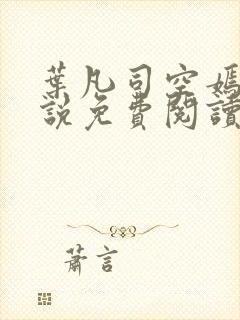 葉凡司空嫣
說免費閱讀
蕭言